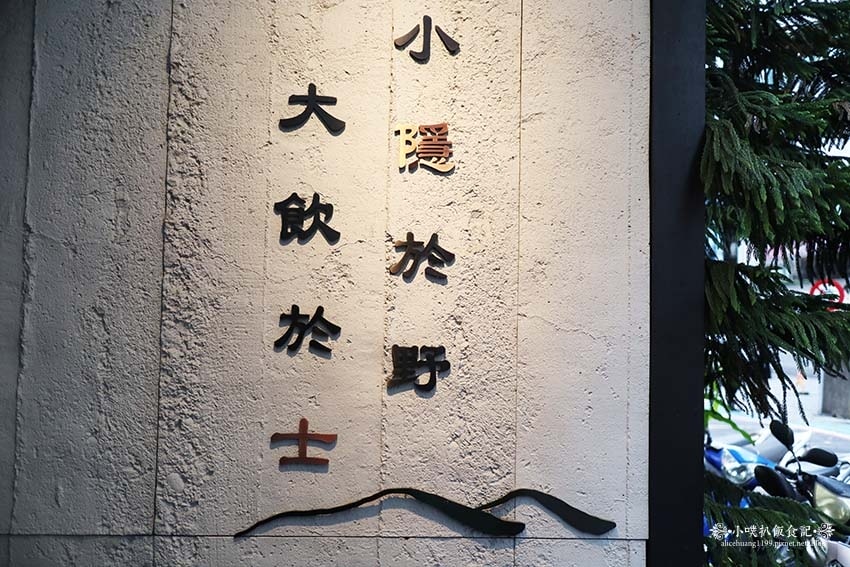 小隱於野
大飲於士
小噗扒飯食記
alicehuang1199.pixnet.net/blog